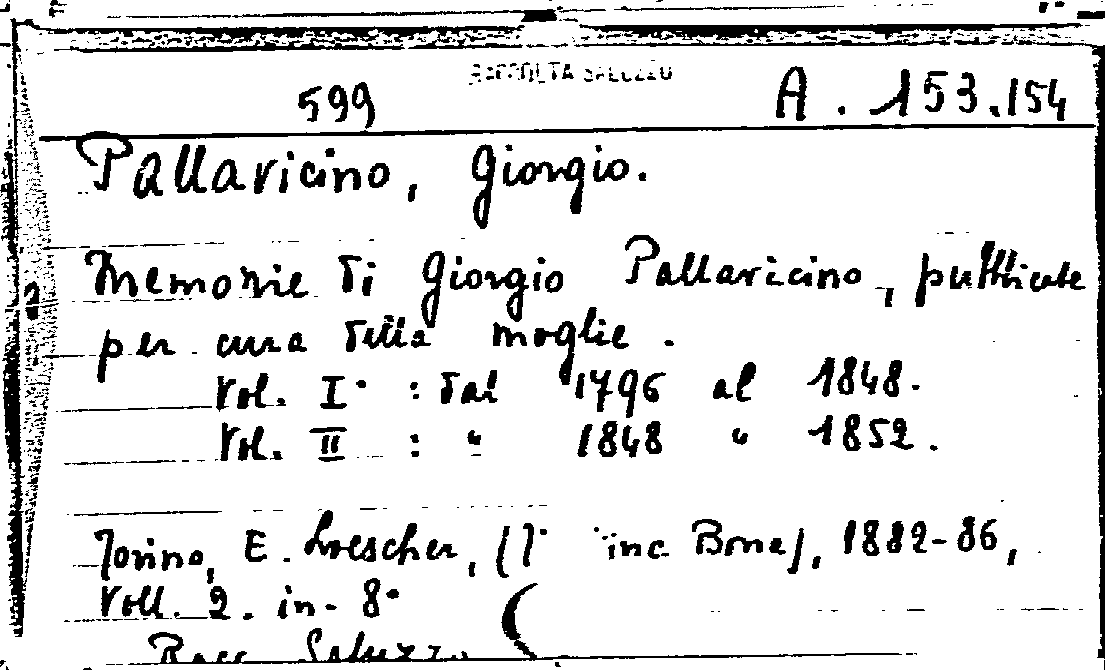 RACCOLTA SALUZZO
599 A. 153.154
Pallavicino, Giorgio.
Memorie di Giorgio Pallavicino, pubblicate
per cura della moglie.
Vol. I° : dal 1796 al 1848.
Vol. II : " 1848 " 1852.
Torino, E. Loescher, (T inc Bona), 1882-86,
Voll. 2. in-8°
Racc. Saluzzo